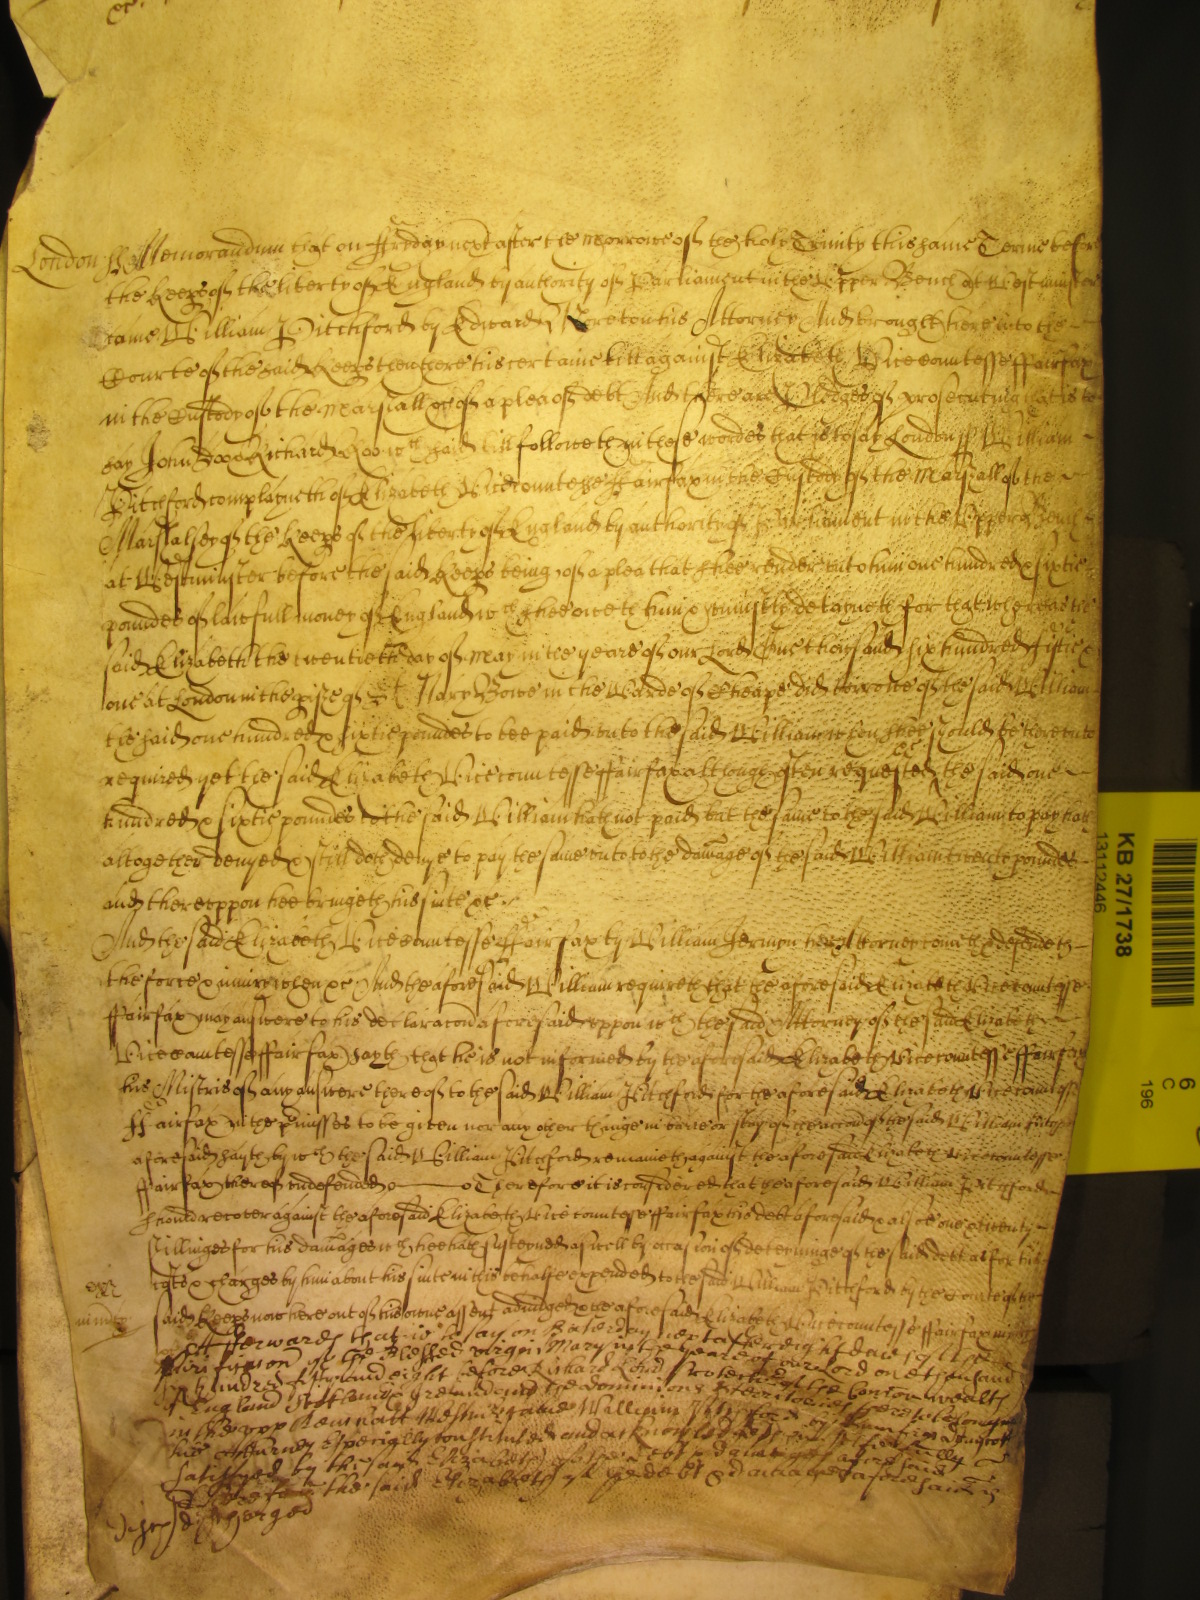 London ss Memorandum that on ffryday next after the morrowe of the holy Trinity this same Terme before
the keeps of the liberty of England by authority of Parliament in the Upper Bench at Westminster
came William Pitchford by Edward his Attorney And brought here into the
Courte of the said keeps then there his certaine bill against Elizabeth Vicecountesse ffairfax
in the Custody of the Marshall &c of a plea of debt And there are Pledges of prosecuting that is to
say John Doo & Richard Roo wch said bill followeth in these wordes that is to say London ss William
Pitchford complayneth of Elizabeth Vicecountesse ffairfax in the Custody of the Marshall of the
Marshalsey of the keeps of the liberty of England by authority of Parliament in the Upper Bench
at Westminster before the said keeps being of a plea that shee render unto him one hundred & sixtie
poundes of lawfull money of England wch shee oweth him & uniustly detayneth for that whereas the
said Elizabeth the twentieth day of May in the yeare of our Lord One thousand six hundred fiftie &
one at London in the pishe of St Mary Bowe in the Warde of Cheape did borrowe of the said William
the said one hundred & sixtie poundes to bee paid unto the said William when shee should be thereunto
required yet the said Elizabeth Vicecountesse ffairfax although often requested &c the said one
hundred & sixtie poundes to the said William hath not paid but the same to the said William to pay hath
altogether denyed & still doth denye to pay the same unto to the damage of the said William twentie poundes
and thereuppon hee bringeth his suite &c
And the said Elizabeth Vicecountesse ffairfax by William Jermon her Attorney cometh & defendeth
the force & iniurie when &c And the aforesaid William requireth that the aforesaid Elizabeth Vicecountesse
ffairfax may answere to his declaracon aforesaid uppon wch the said Attorney of the said Elizabeth
Vicecountesse ffairfax sayth that he is not informed by the aforesaid Elizabeth Vicecountesse ffairfax
his Mistris of any answere thereof to the said William Pitchford for the aforesaid Elizabeth Vicecountesse
ffairfax in the premisses to be given nor any other thinge in barre or stay of the accon of the said William
aforesaid sayth by wch the said William Pitchford remaineth against the aforesaid Elizabeth Vicecountesse
ffairfax thereof undefended Therefore it is considered that the aforesaid William Pitchford
should recover against the aforesaid Elizabeth Vicecountesse ffairfax his debt aforesaid & also one & twenty
shillinges for his damages wch hee hath susteyned aswell by occasion of deteyninge of the said debt as for his
costs & charges by him about his suite in this behalfe expended to the said William Pitchford by the Courte of the
said keeps now here out of his owne assent adiudged & the aforesaid Elizabeth Vicecountesse ffairfax in
Afterwards that is to say on Saterday next after eight daies of the
Purification of the Blessed virgin Mary in the yeare of our Lord one thousand
six hundred fiftie and eight before Richard Lord Protector of the Comon wealth
of England Scotland & Ireland and the dominions & territories thereto belonging
in the upp Bench att Westmr came William Pitchford by
his Attorney especially constituted and acknowledged himself to be fully
satisfyed by the said Elizabeth of the debt & damages aforesaid
Therefore the said Elizabeth of the debt & damages aforesaid is
discharged
KB 27/1738
13112446
6
C
196